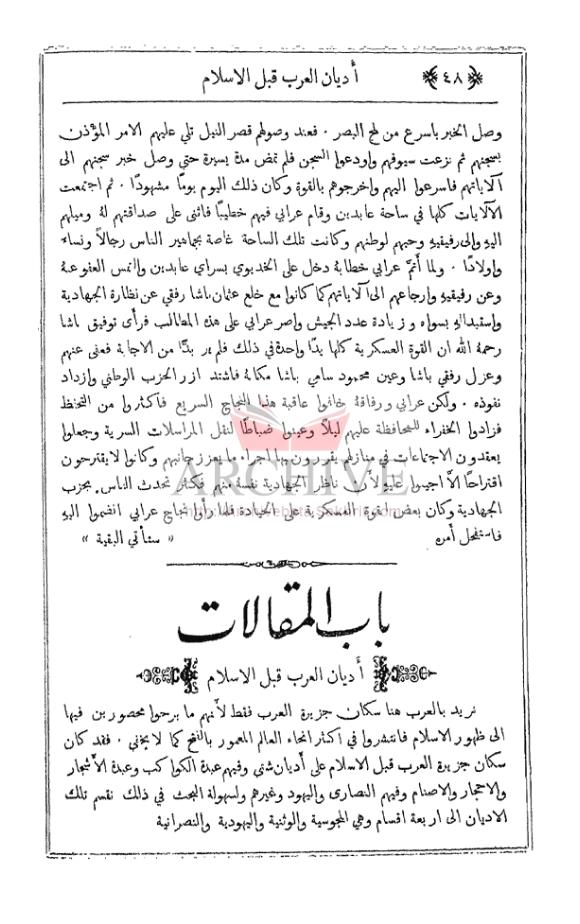 ﴿٤٨﴾ أديان العرب قبل الاسلام
وصل الخبر باسرع من لمح البصر ۰ فعند وصولهم قصر النيل تلي عليهم الامر المؤذن
بسجنهم ثم نزعت سيوفهم واودعوا السجن فلم تمض مدة يسيرة حتى وصل خبر سجنهم الى
آلاياتهم فاسرعوا اليهم واخرجوهم بالقوة وكان ذلك اليوم يومًا مشهودًا ۰ ثم اجتمعت
الآلايات كلها في ساحة عابدين وقام عرابي فيهم خطيبًا فاثنى على صداقتهم لهُ وميلهم
اليهِ والى رفيقيهِ وحبهم لوطنهم وكانت تلك الساحة غاصة بجماهير الناس رجالاً ونساء
واولادًا ۰ ولما أتمَّ عرابي خطابهُ دخل على الخديوي بسراي عابدين والتمس العفو عنهُ
وعن رفيقيهِ وارجاعهم الى آلاياتهم كما كانوا مع خلع عثمان باشا رفقي عن نظارة الجهادية
واستبدالهِ بسواه وزيادة عدد الجيش واصر عرابي على هذه المطالب فرأى توفيق باشا
رحمهُ الله ان القوة العسكرية كلها يدًا واحدة في ذلك فلم ير بدًّا من الاجابة فعفى عنهم
وعزل رفقي باشا وعين محمود سامي باشا مكانهُ فاشتد ازر الحزب الوطني وازداد
نفوذه ۰ ولكن عرابي ورفاقهُ خافوا عاقبة هذا النجاح السريع فأكثروا من التحفظ
فزادوا الخفراء للمحافظة عليهم ليلاً وعينوا ضباطًا لنقل المراسلات السرية وجعلوا
يعقدون الاجتماعات في منازلهم يقررون بها اجراء ما يعزز جانبهم وكانوا لا يقترحون
اقتراحًا الاَّ اجيبوا عليهِ لأن ناظر الجهادية نفسهُ منهم فكثر تحدث الناس بحزب
الجهادية وكان بعض القوة العسكرية على الحيادة فلما رأوا نجاح عرابي انضموا اليهِ
فاستفحل أمره « ستأتي البقية »
ARCHIVE
باب المقالات
أديان العرب قبل الاسلام
نريد بالعرب هنا سكان جزيرة العرب فقط لأنهم ما برحوا محصورين فيها
الى ظهور الاسلام فانتشروا في اكثر انحاء العالم المعمور بالفتح كما لا يخفى ۰ فقد كان
سكان جزيرة العرب قبل الاسلام على أديان شتى وفيهم عبدة الكواكب وعبدة الأشجار
والاحجار والاصنام وفيهم النصارى واليهود وغيرهم ولسهولة البحث في ذلك نقسم تلك
الاديان الى اربعة اقسام وهي المجوسية والوثنية واليهودية والنصرانية